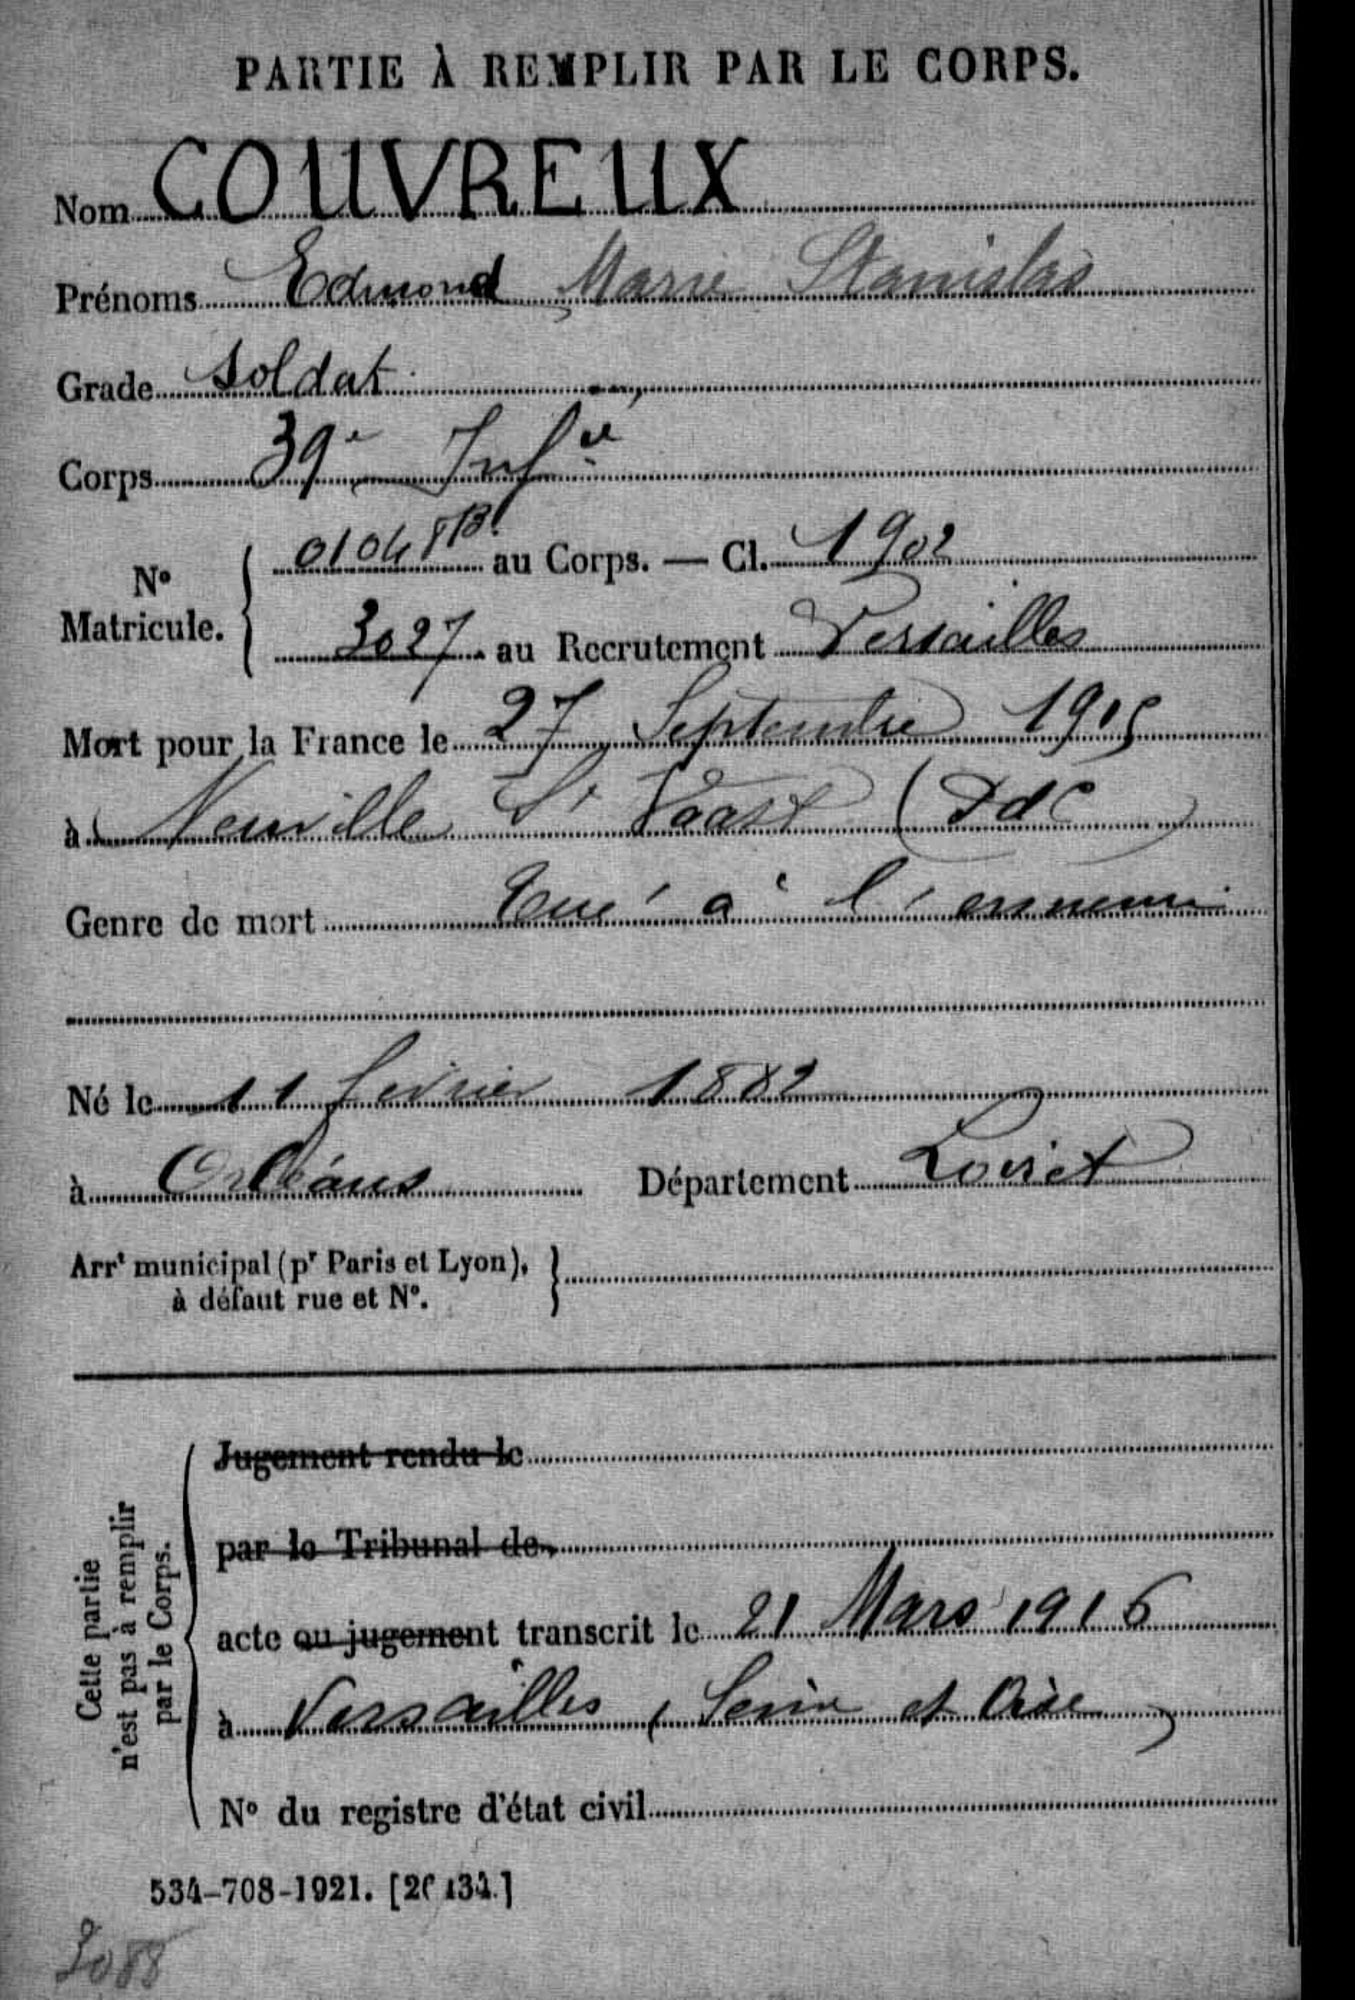 PARTIE À REMPLIR PAR LE CORPS.
Nom COUVREUX
Prénoms Edmond Marie Stanislas
Grade Soldat
Corps 39e Infie
No Matricule.
01048 B. au Corps. — Cl. 1902
3027. au Recrutement Versailles
Mort pour la France le 27 Septembre 1915
à Neuville St Vaast (PdC)
Genre de mort tué à l'ennemi
Né le 11 février 1882
à Orléans Département Loiret
Arrt municipal (pr Paris et Lyon),
à défaut rue et No.
Cette partie
n'est pas à remplir
par le Corps.
Jugement rendu le
par le Tribunal de
acte ou jugement transcrit le 21 Mars 1916
à Versailles (Seine et Oise)
No du registre d'état civil
534-708-1921. [26434.]
3088